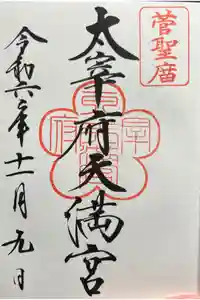 菅聖暦
太宰府天満宮
令和六年十一月九日